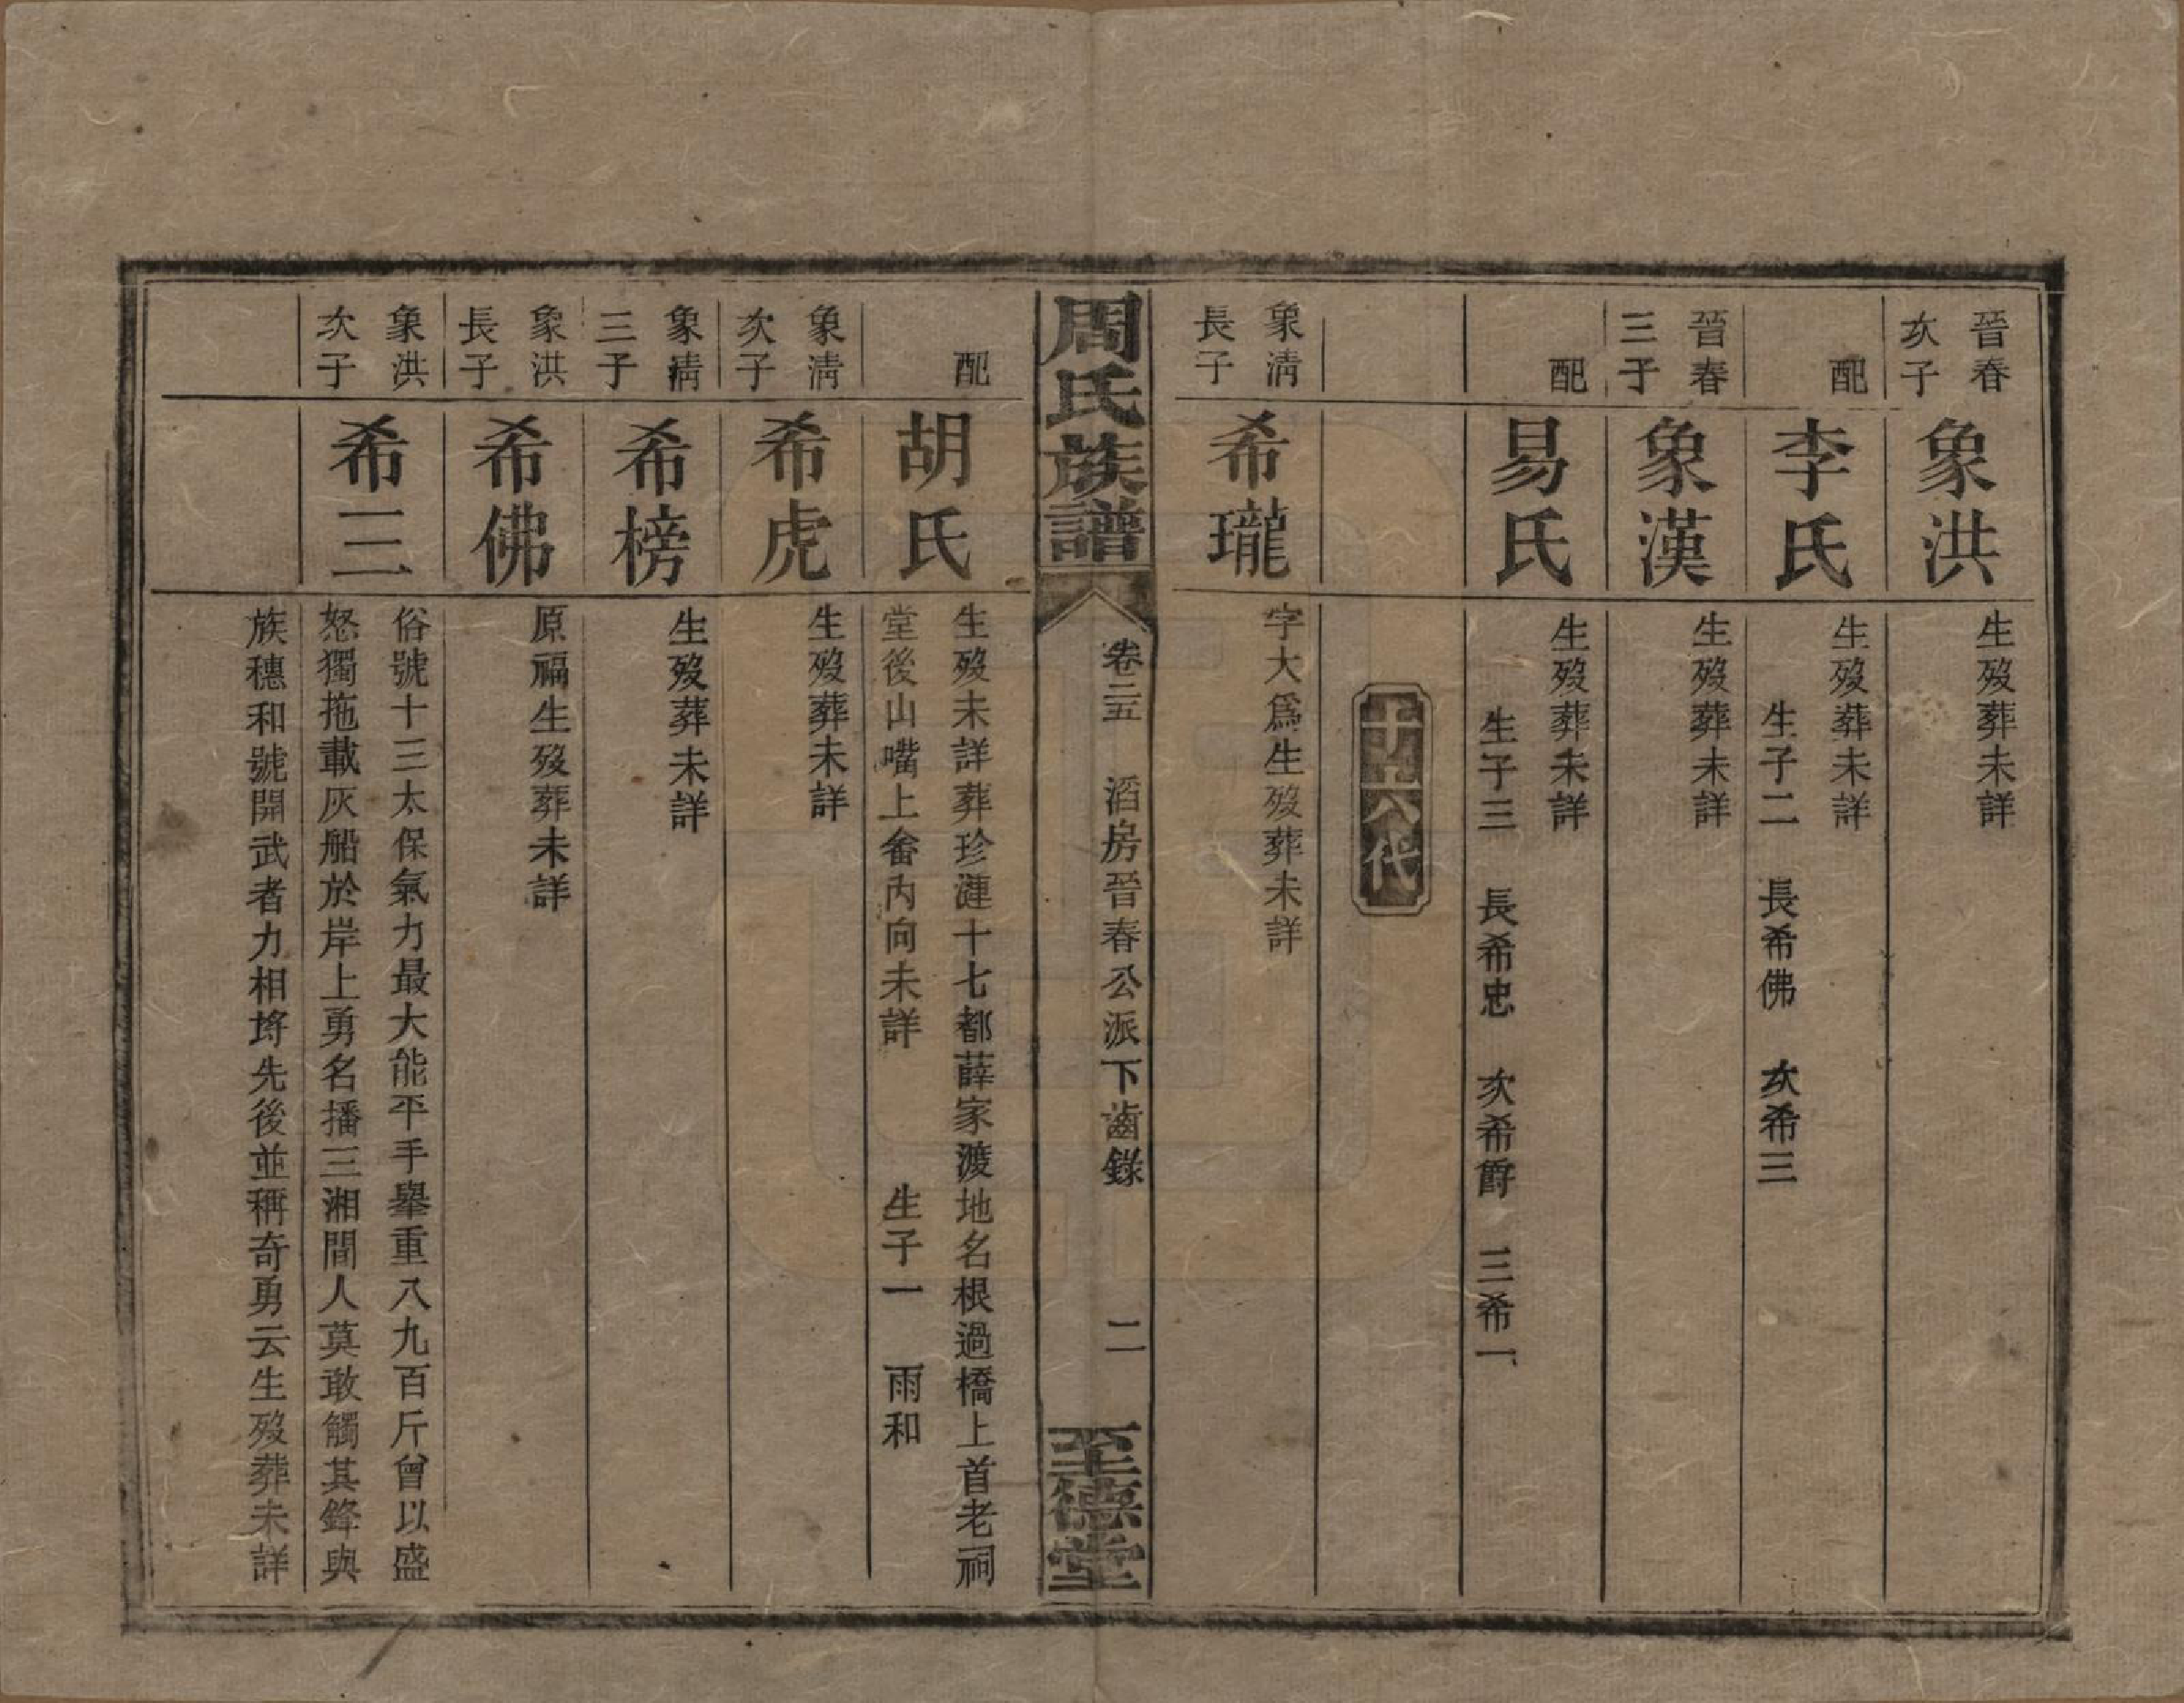 晉春
次子
象洪
生歿葬未詳
配
李氏
生歿葬未詳
生子二　長希佛　次希三
晉春
三子
象漢
生歿葬未詳
配
易氏
生歿葬未詳
生子三　長希忠　次希爵　三希一
十五代
象淸
長子
希瓏
字大爲生歿葬未詳
周氏族譜
卷二五　滔房晉春公派下齒錄　二
至德堂
配
胡氏
生歿未詳葬珍漣十七都薛家渡地名根過橋上首老祠
堂後山嘴上畬內向未詳　生子一　雨和
象淸
次子
希虎
生歿葬未詳
象淸
三子
希榜
生歿葬未詳
象洪
長子
希佛
原福生歿葬未詳
象洪
次子
希三
俗號十三太保氣力最大能平手舉重八九百斤曾以盛
怒獨拖載灰船於岸上勇名播三湘間人莫敢觸其鋒與
族穗和號開武者力相埒先後並稱奇勇云生歿葬未詳